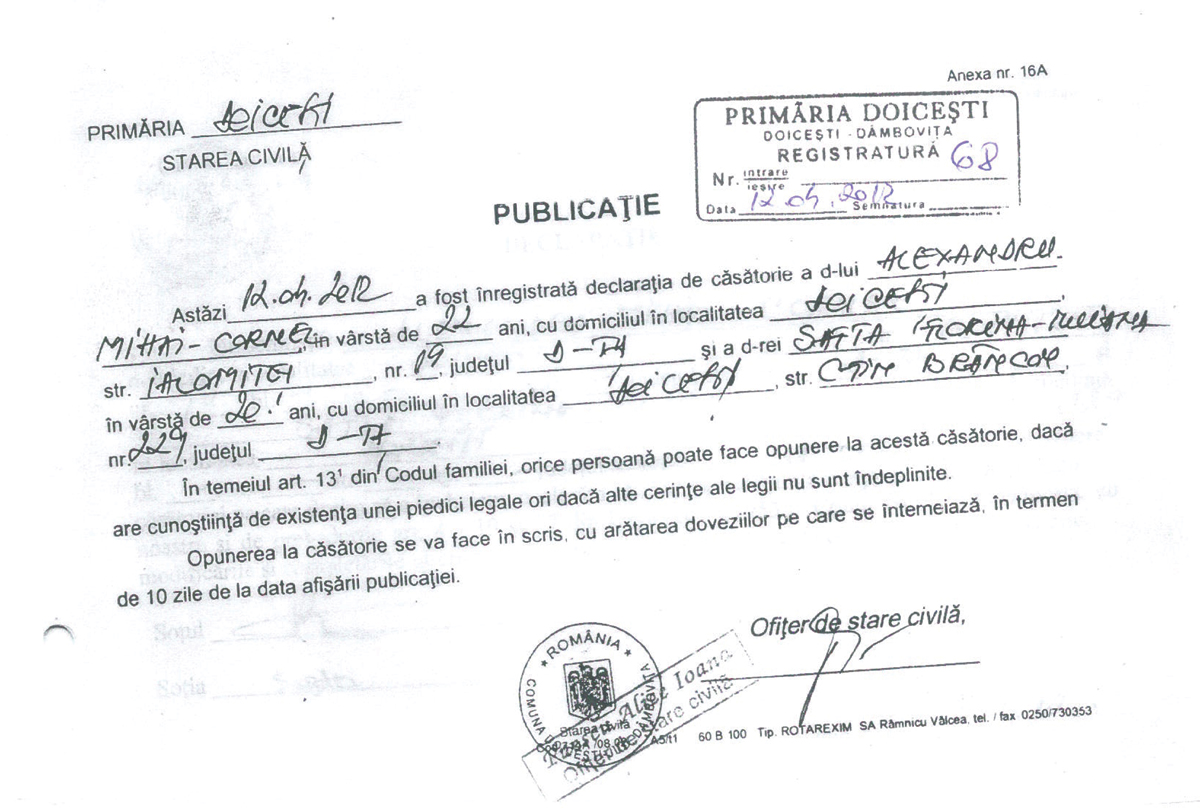 Anexa nr. 16A
PRIMĂRIA Doicești
STAREA CIVILĂ
PRIMĂRIA DOICEŞTI
DOICEŞTI - DÂMBOVIŢA
REGISTRATURĂ 68
Nr. intrare
ieşire
Data 12.04.2012 Semnatura
PUBLICAŢIE
Astăzi 12.04.2012 a fost înregistrată declaraţia de căsătorie a d-lui ALEXANDRU
MIHAI-CORNEL, în vârstă de 22 ani, cu domiciliul în localitatea Doicești,
str. IALOMIȚEI, nr. 19, judeţul D-ȚA şi a d-rei SAFTA FLORINA-IULIANA
în vârstă de 20 ani, cu domiciliul în localitatea Doicești, str. CTIN BRÂNCOV,
nr. 229, judeţul D-ȚA.
În temeiul art. 13¹ din Codul familiei, orice persoană poate face opunere la acestă căsătorie, dacă
are cunoştiinţă de existenţa unei piedici legale ori dacă alte cerinţe ale legii nu sunt îndeplinite.
Opunerea la căsătorie se va face în scris, cu arătarea doveziilor pe care se întemeiază, în termen
de 10 zile de la data afişării publicaţiei.
Soţul
Soţia
Ofiţer de stare civilă,
ROMÂNIA
COMUNA DOICEŞTI DÂMBOVIŢA
Starea civilă
Alice Ioana
Ofiţer de stare civilă
A5/t1 60 B 100 Tip. ROTAREXIM SA Râmnicu Vâlcea, tel. / fax 0250/730353